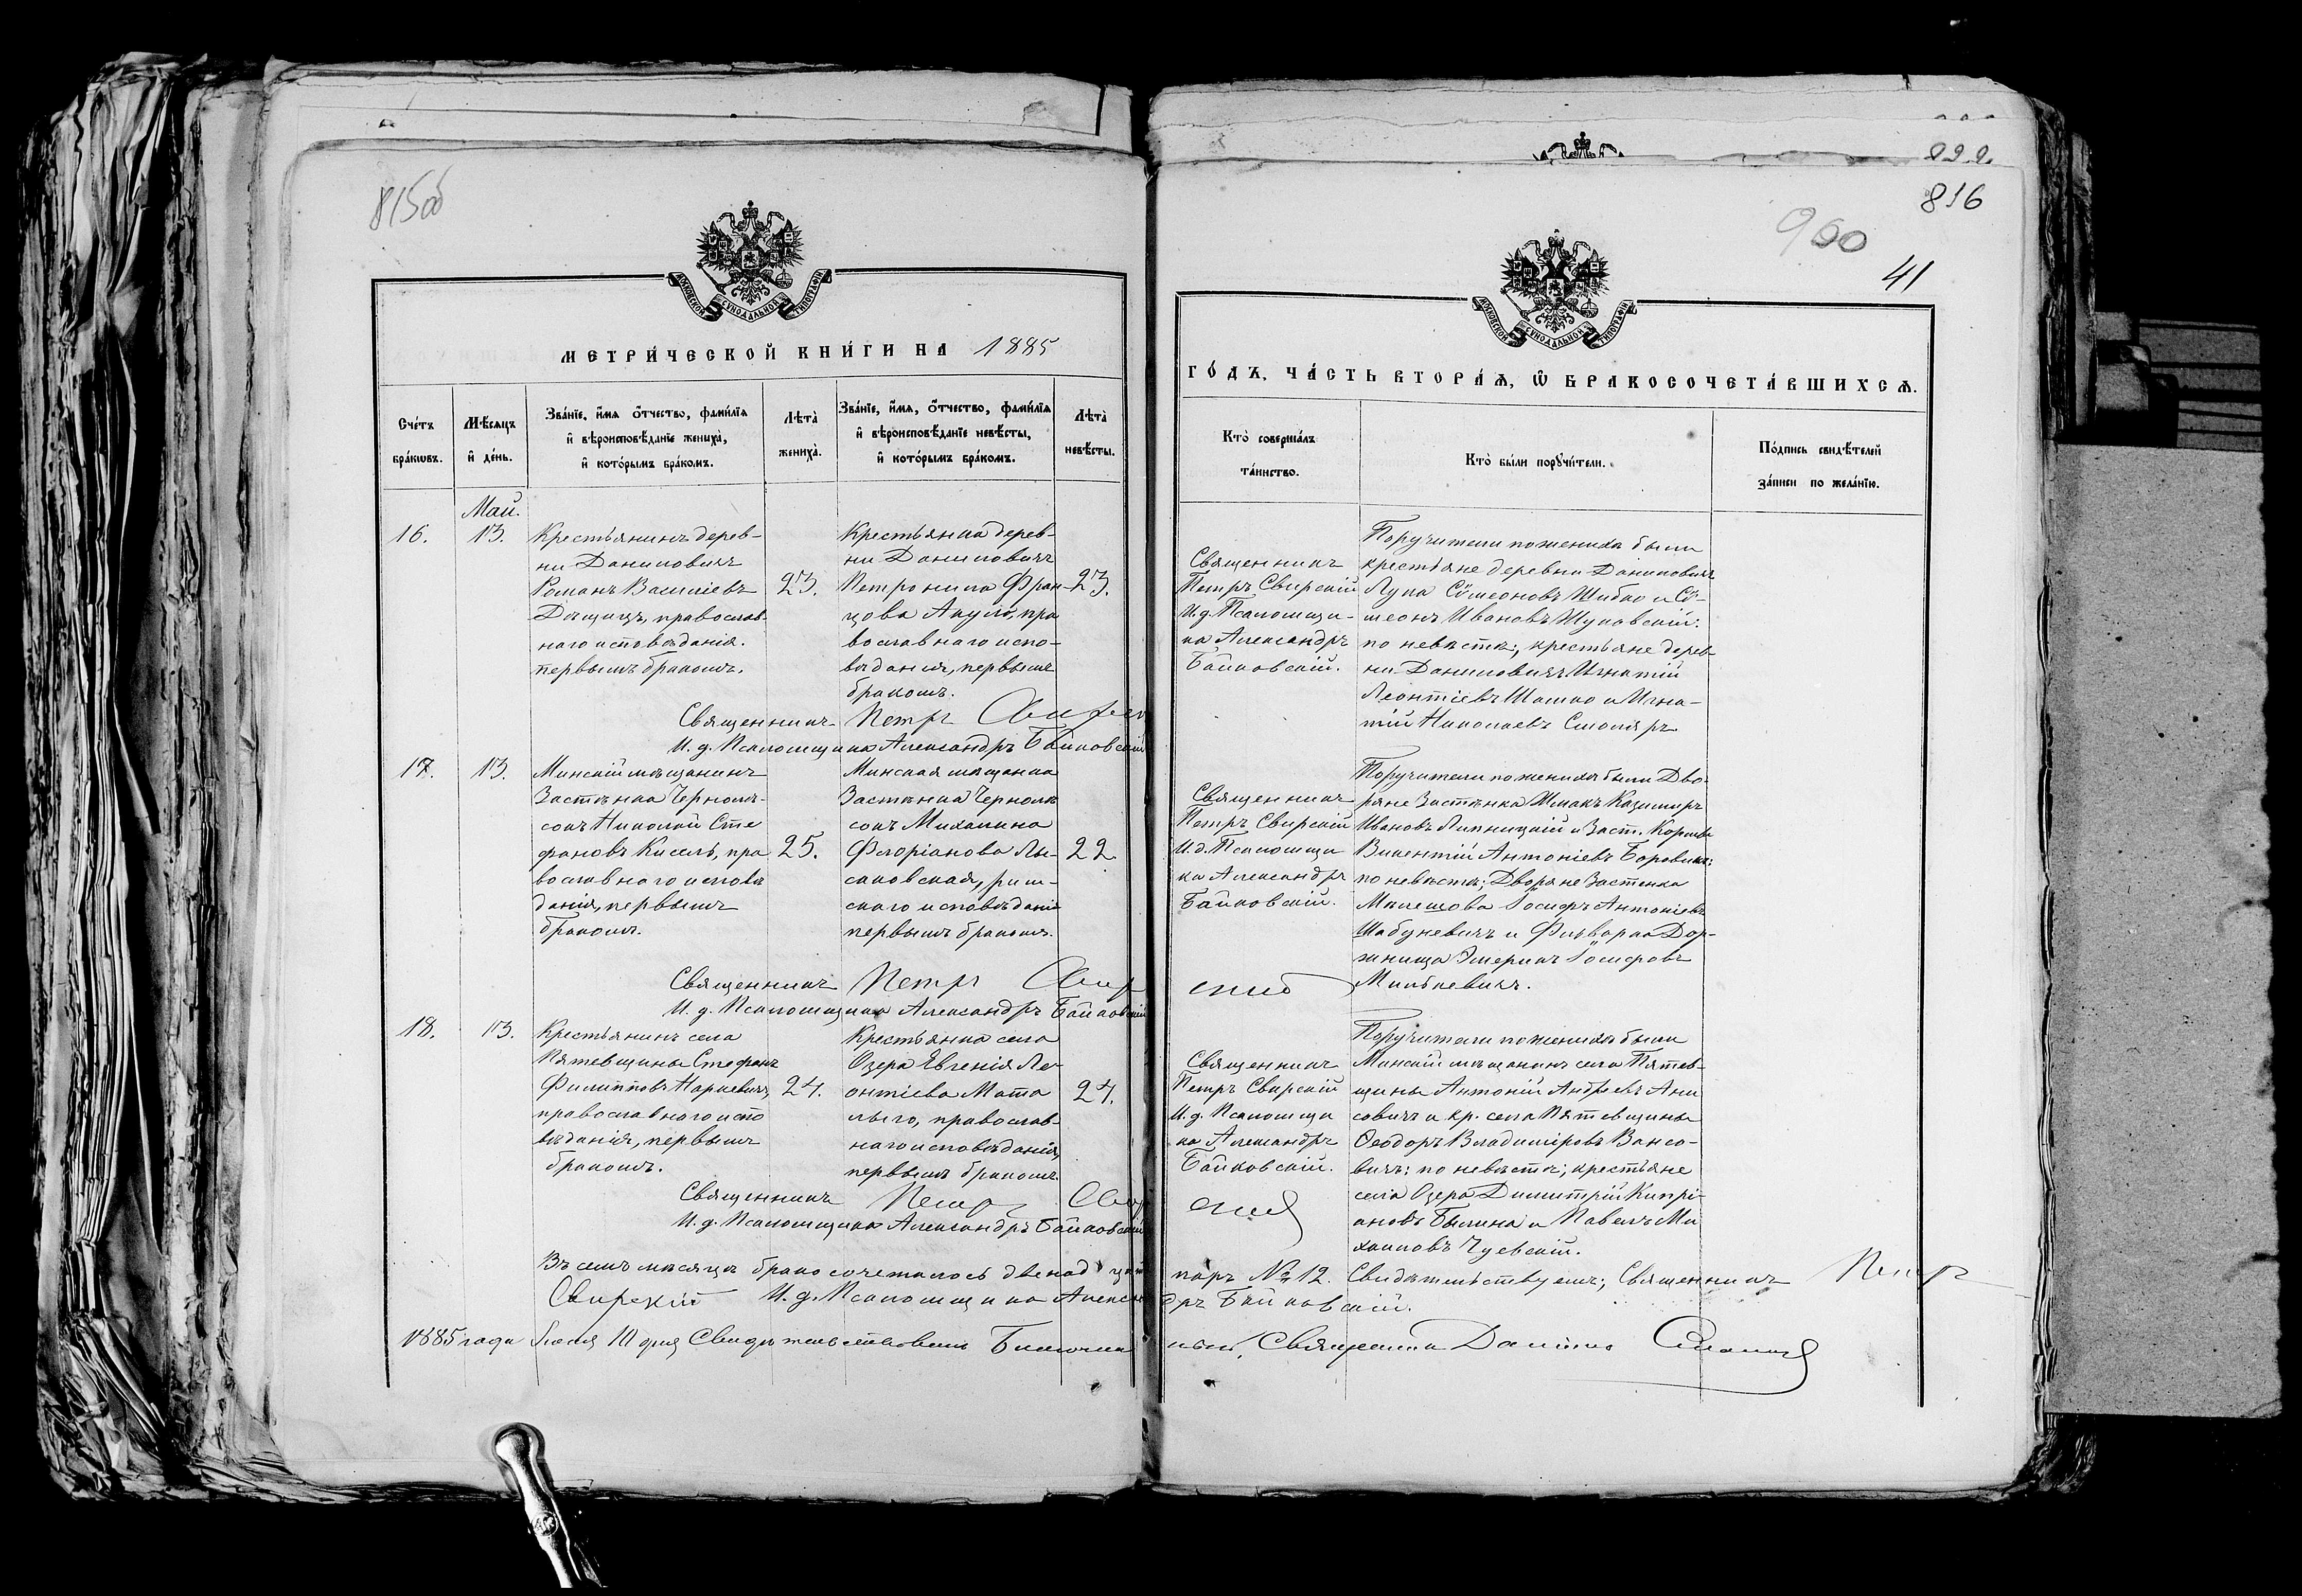 815об
МОСКОВСКОЙ СѴНОДАЛЬНОЙ ТИПОГРАФІИ
МЕТРИ́ЧЕСКОЙ КНИ́ГИ НА 1885
Сче́тъ бра́кѡвъ.
Мѣ́сяцъ и҆ де́нь.
Зва́нїе, и҆́мя ѻ҆́тчество, фами́лїя
и҆ вѣроисповѣ́данїе жениха̀,
и҆ кото́рымъ бра́комъ.
Лѣта̀ жениха̀.
Зва́нїе, и҆́мя, ѻ҆́тчество, фами́лїя
и҆ вѣроисповѣ́данїе невѣ́сты,
и҆ кото́рымъ бра́комъ.
Лѣта̀ невѣ́сты.
Май.
16. 13.
Крестьянинъ дерев-
ни Даниловичъ
Романъ Василіевъ 23.
Дащицъ, православ
наго исповѣданія.
первымъ бракомъ.
Крестьянка дерев-
ни Даниловичъ
Петронила Фран- 23.
цова Акуло, пра
вославнаго испо-
вѣданія, первымъ
бракомъ.
Священникъ Петръ
И. д. Псаломщика Александръ Байковскій
17. 13.
Минскій мѣщанинъ
Застѣнка Чернолѣ-
сокъ Николай Сте
фановъ Кисель, пра 25.
вославнаго исповѣ
данія, первымъ
бракомъ.
Минская мѣщанка
Застѣнка Чернолѣ
сокъ Михалина
Флоріанова Лы- 22.
саковская, рим-
скаго исповѣданія
первымъ бракомъ.
Священникъ Петръ Свир
И. д. Псаломщика Александръ Байковскій
18. 13.
Крестьянинъ села
Пятевщины Стефанъ
Филипповъ Наркевичъ, 24.
православнаго испо
вѣданія, первымъ
бракомъ.
Крестьянка села
Озера Евгенія Ле-
онтіева Мата 24.
лыго, православ-
наго исповѣданія,
первымъ бракомъ.
Священникъ Петръ Свир
И. д. Псаломщика Александръ Байковскій
Въ семъ мѣсяцѣ бракосочеталось двенадцать
Свирскій И. д. Псаломщика Алексан
1885 года Іюля 10 дня Свидѣтельствовалъ Благочин
816
900
41
МОСКОВСКОЙ СѴНОДАЛЬНОЙ ТИПОГРАФІИ
ГО́ДЪ, ЧА́СТЬ ВТОРА́Ѧ, Ѽ БРАКОСОЧЕТА́ВШИХСѦ.
Кто̀ соверша́лъ та́инство.
Кто̀ бы́ли порꙋчи́тели.
По́дпись свидѣ́телей за́писи по жела́нїю.
Священникъ
Петръ Свирскій
И. д. Псаломщи-
ка Александръ
Байковскій.
Поручители по женихѣ были
крестьяне деревни Даниловичъ
Лука Сѵмеоновъ Шибко и Сѵ-
меонъ Ивановъ Жуковскій:
по невѣстѣ; крестьяне дерев
ни Даниловичъ Игнатій
Леонтіевъ Шашко и Игна-
тій Николаевъ Смоляръ
Священникъ
Петръ Свирскій
И. д. Псаломщи
ка Александръ
Байковскій.
скій
Поручители по женихѣ были Дво-
ряне Застѣнка Шпакъ Казимиръ
Ивановъ Липницкій и Заст.
Викентій Антоніевъ Боровикъ:
по невѣстѣ; Дворяне Застенка
Іосифъ Антоніевъ
Шабуневичъ и Фольварка Дор-
жница Эмерикъ Іосифовъ
Милькевичъ.
Священникъ
Петръ Свирскій
И. д. Псаломщи
ка Александръ
Байковскій.
скій
Поручители по женихѣ были
Минскій мѣщанинъ села Пятев-
щины Антоній Андреевъ Ани
совичъ и кр. села Пятевщины
Ѳеодоръ Владиміровъ Вансо-
вичъ: по невѣстѣ; крестьяне
села Озера Димитрій Кипрі-
ановъ Былина и Павелъ Ми
хаиловъ Чуевскій.
паръ № 12. Свидѣтельствуемъ; Священникъ Петръ
дръ Байковскій.
ный, Священникъ